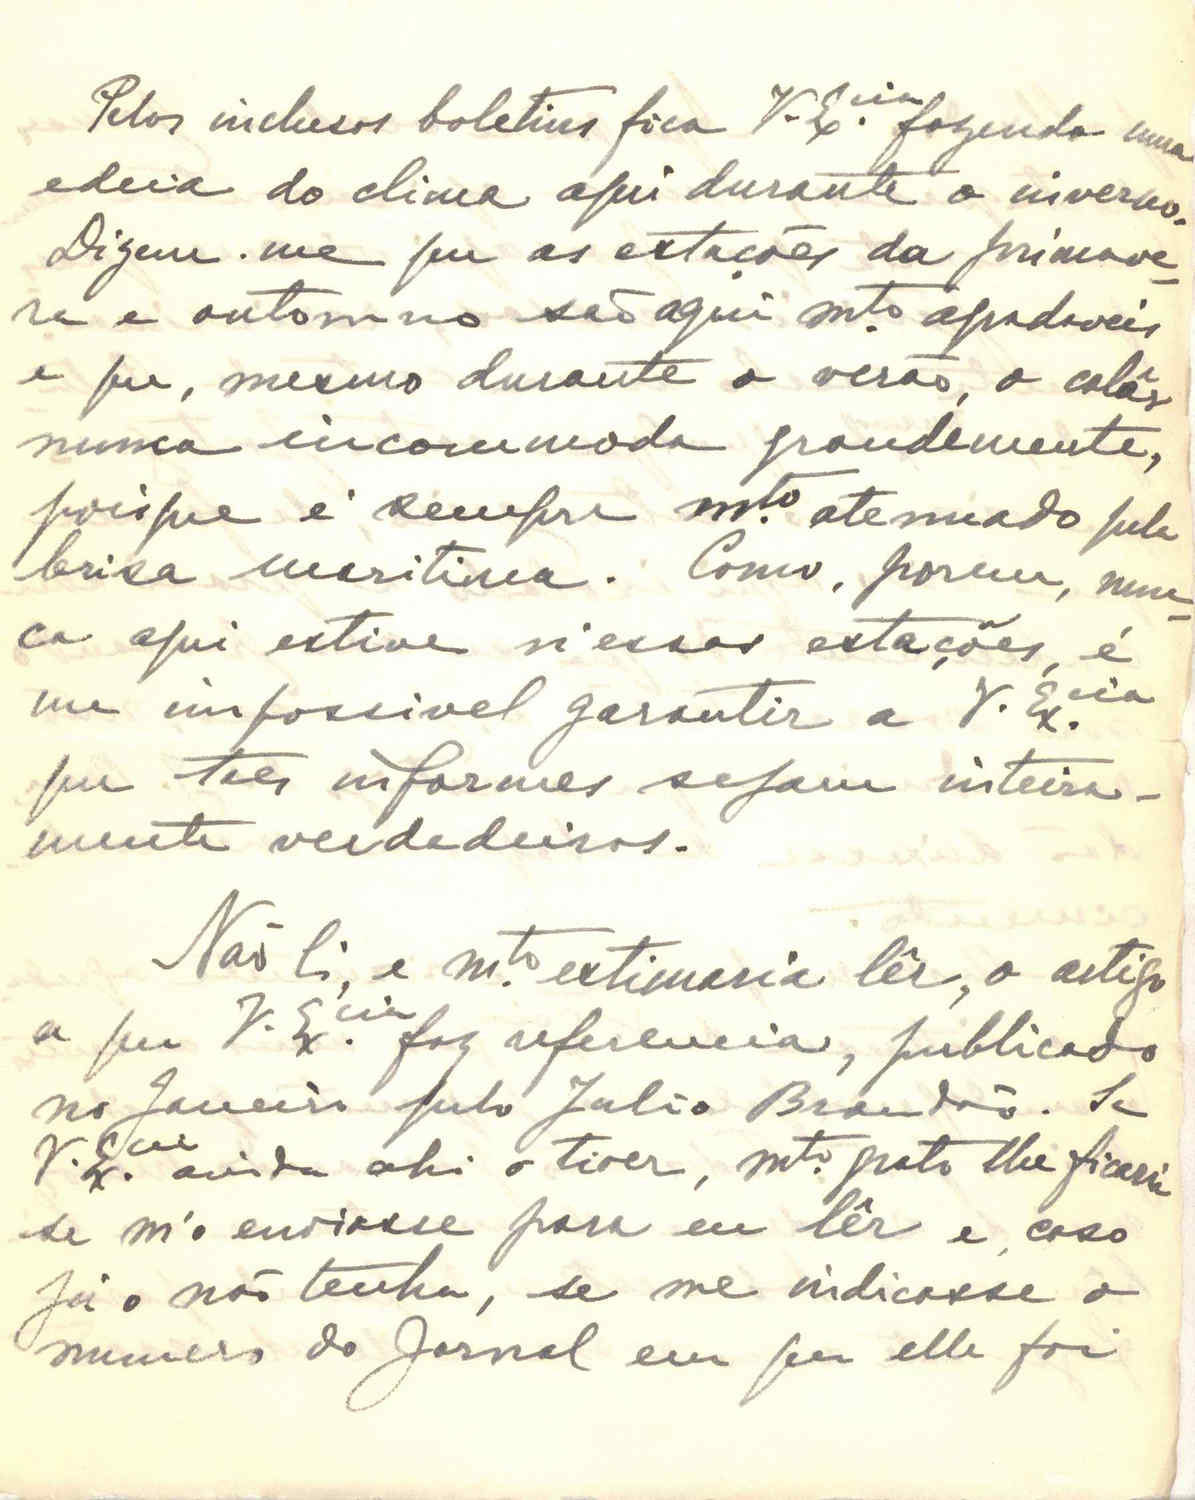 Pelos inclusos boletins fica V. Ex.cia fazendo uma
edeia do clima aqui durante o inverno.
Dizem-me que as estações da primave-
ra e outomno são aqui mto. agradaveis
e que, mesmo durante o verão, o calôr
nunca incommoda grandemente,
porque é sempre mto. atenuado pela
brisa maritima. Como, porem, nun-
ca aqui estive n'essas estações, é
me impossivel garantir a V. Ex.cia
que taes informes sejam inteira-
mente verdadeiros.
Não li, e mto. estimaria lêr, o artigo
a que V. Ex.cia faz referencia, publicado
no Janeiro pelo Julio Brandão. Se
V. Ex.cia ainda ahi o tiver, mto. grato lhe ficaria
se m'o enviasse para eu lêr e, caso
já o não tenha, se me indicasse o
numero do Jornal em que elle foi